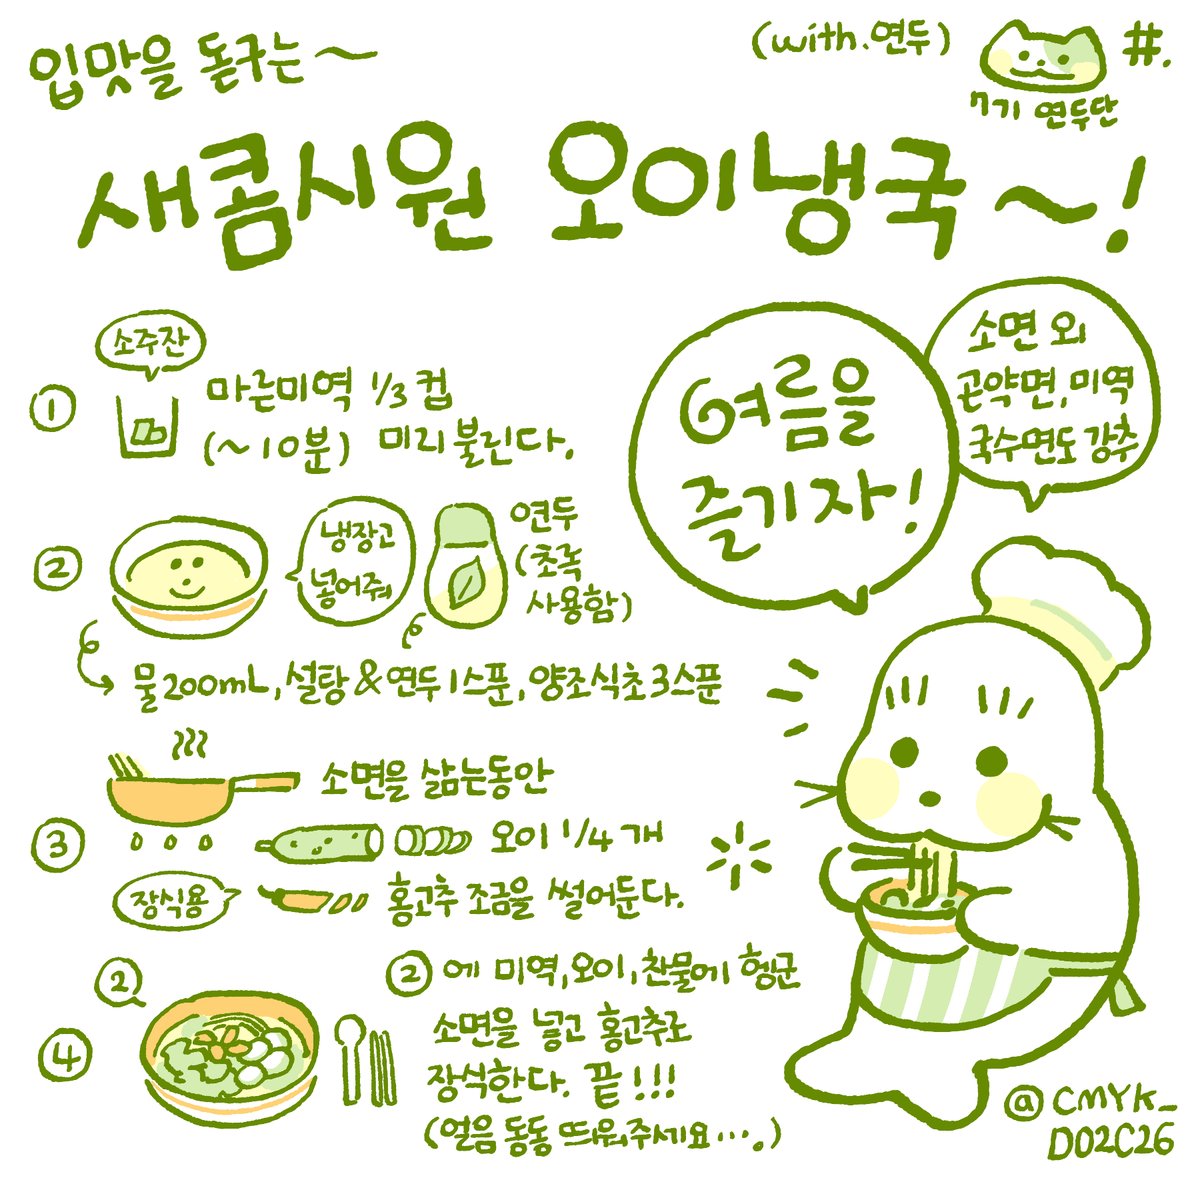 입맛을 돋구는~
(with.연두)
#.
7기 연두단
새콤시원 오이냉국~!
소주잔
①
마른미역 1/3 컵
(~10분) 미리 불린다.
여름을
즐기자!
소면 외
곤약면, 미역
국수면도 강추
②
냉장고
넣어줘
연두
(초록
사용함)
물 200mL, 설탕 & 연두 1스푼, 양조식초 3스푼
③
소면을 삶는동안
오이 1/4 개
장식용
홍고추 조금을 썰어둔다.
②
④
② 에 미역, 오이, 찬물에 헹군
소면을 넣고 홍고추로
장식한다. 끝!!!
(얼음 동동 띄워주세요....)
@CMYK_
D02C26